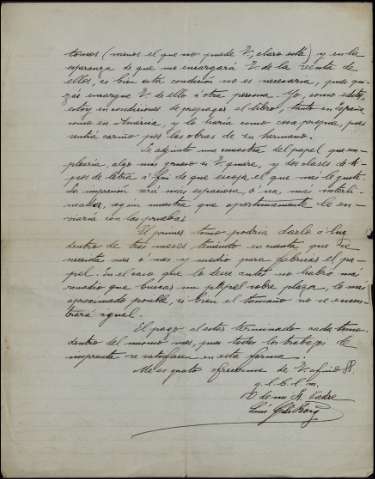 tomos (menos el que no puede V., claro está) y en la
esperanza de que me encargará V. de la venta de
ellos, si bien esta condición no es necesaria, pues qui-
zás encargue V. de ello á otra persona. Yo, como editor,
estoy en condiciones de propagar el libro, tanto en España
como en América, y lo haría como cosa propia, pues
sentía cariño por las obras de su hermano.
Le adjunto una muestra del papel que em-
plearía, algo más grueso si V. quiere, y dos clases de ti-
pos de letra á fin de que escoja el que más le guste.
La impresión será más espaciosa, ó sea, más interli-
neada, según muestra que oportunamente le en-
viaré con las pruebas.
El primer tomo podría darlo á luz
dentro de tres meses teniendo en cuenta que se
necesita mes ó mes y medio para fabricar el pa-
pel. En el caso que le dese antes no habría más
remedio que buscar un papel sobre plaza, lo más
aproximado posible, si bien el tamaño no se encon-
trará igual.
El pago al estar terminado cada tomo
dentro del mismo mes, pues todos los trabajos de
imprenta se satisfacen en esta forma.
Me es grato ofrecerme de V. afmo. SS.
q. l. b. l. m.
P. de mi Sr. Padre
Luis